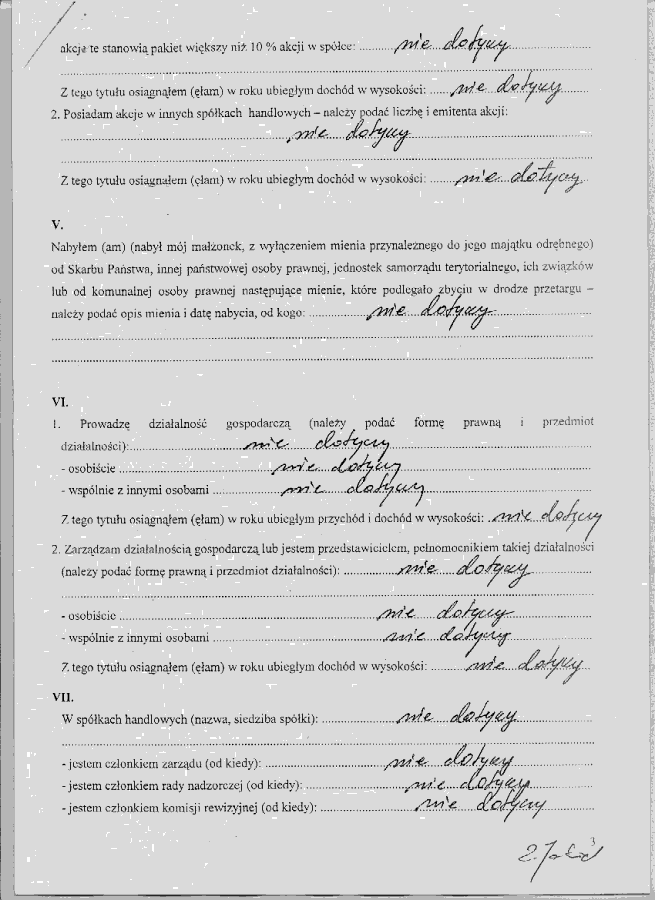 akcje te stanowią pakiet większy niż 10 % akcji w spółce: nie dotyczy
Z tego tytułu osiągnąłem (ęłam) w roku ubiegłym dochód w wysokości: nie dotyczy
2. Posiadam akcje w innych spółkach handlowych – należy podać liczbę i emitenta akcji:
nie dotyczy
Z tego tytułu osiągnąłem (ęłam) w roku ubiegłym dochód w wysokości: nie dotyczy
V.
Nabyłem (am) (nabył mój małżonek, z wyłączeniem mienia przynależnego do jego majątku odrębnego)
od Skarbu Państwa, innej państwowej osoby prawnej, jednostek samorządu terytorialnego, ich związków
lub od komunalnej osoby prawnej następujące mienie, które podlegało zbyciu w drodze przetargu –
należy podać opis mienia i datę nabycia, od kogo: nie dotyczy
VI.
1. Prowadzę działalność gospodarczą (należy podać formę prawną i przedmiot
działalności): nie dotyczy
- osobiście nie dotyczy
- wspólnie z innymi osobami nie dotyczy
Z tego tytułu osiągnąłem (ęłam) w roku ubiegłym przychód i dochód w wysokości: nie dotyczy
2. Zarządzam działalnością gospodarczą lub jestem przedstawicielem, pełnomocnikiem takiej działalności
(należy podać formę prawną i przedmiot działalności): nie dotyczy
- osobiście nie dotyczy
- wspólnie z innymi osobami nie dotyczy
Z tego tytułu osiągnąłem (ęłam) w roku ubiegłym dochód w wysokości: nie dotyczy
VII.
W spółkach handlowych (nazwa, siedziba spółki): nie dotyczy
- jestem członkiem zarządu (od kiedy): nie dotyczy
- jestem członkiem rady nadzorczej (od kiedy): nie dotyczy
- jestem członkiem komisji rewizyjnej (od kiedy): nie dotyczy
3